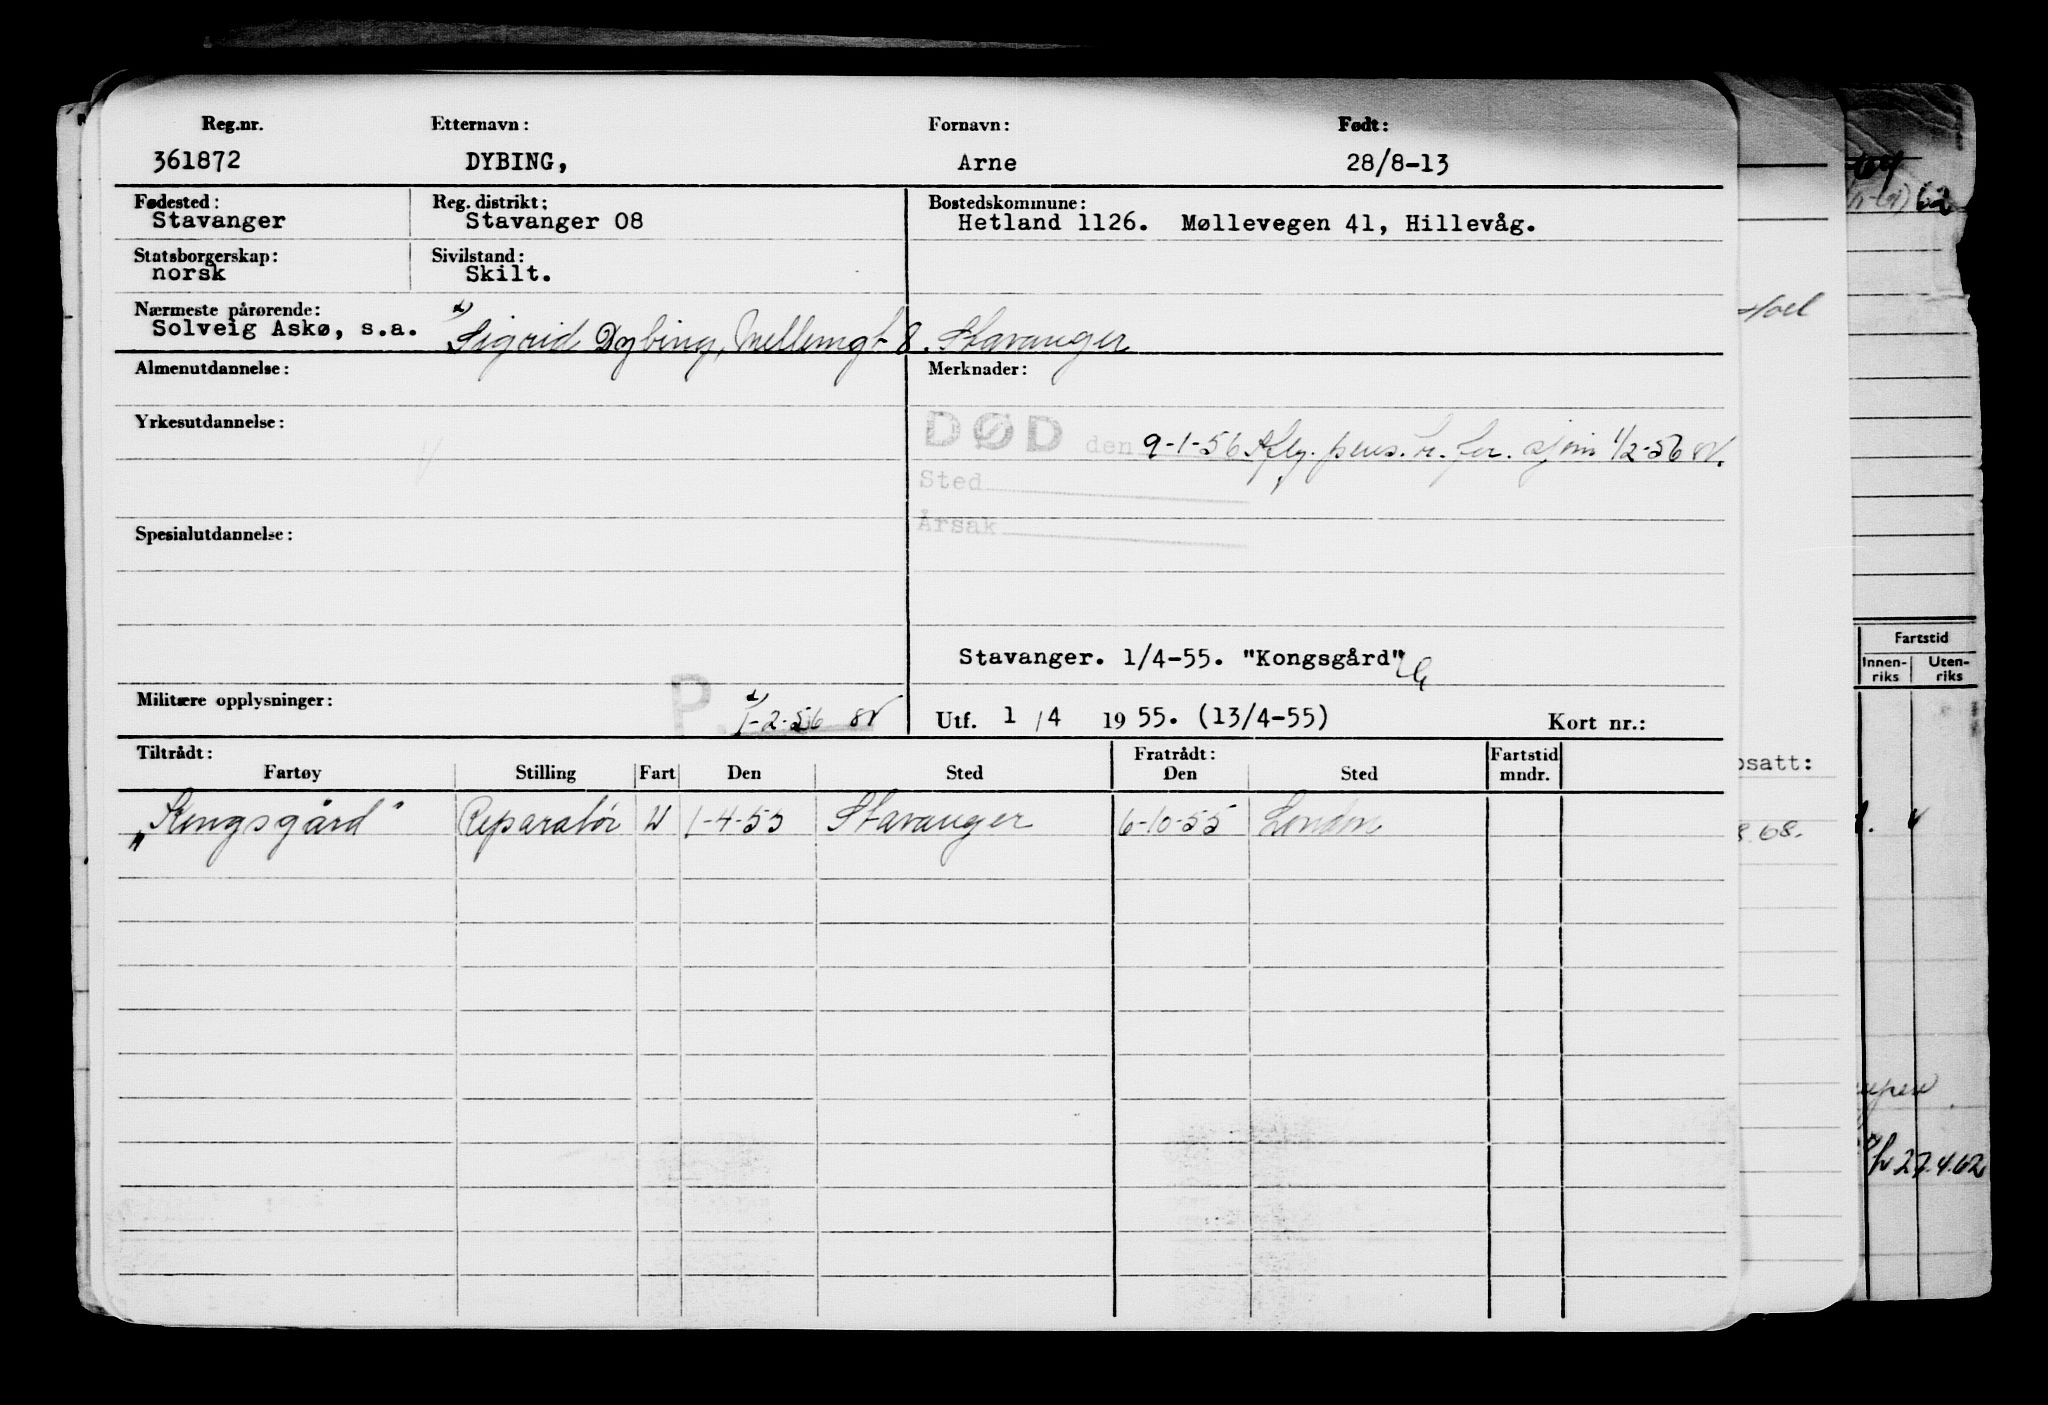 Reg.nr. Etternavn: Fornavn: Født:
361872 DYBING, Arne 28/8-13
Fødested: Reg. distrikt: Bostedskommune:
Stavanger Stavanger 08 Hetland 1126. Møllevegen 41, Hillevåg.
Statsborgerskap: Sivilstand:
norsk Skilt.
Nærmeste pårørende:
Solveig Askø, s.a. Sigrid Dybing, Mellemgt 8. Stavanger
Almenutdannelse: Merknader:
Yrkesutdannelse: DØD den 9-1-56 iflg. pens. tr. for sjøm 1/2-56
Sted
Årsak
Spesialutdannelse:
Stavanger. 1/4-55. "Kongsgård"
Militære opplysninger: P. 1-2-56 Utf. 1/4 1955. (13/4-55) Kort nr.:
Tiltrådt: Fratrådt: Fartstid
Fartøy Stilling Fart Den Sted Den Sted mndr.
"Kongsgård" Reparatør U 1-4-55 Stavanger 6-10-55 London
62
Hoel
Fartstid
Innen- Uten-
riks riks
psatt:
8.68.
27.4.62